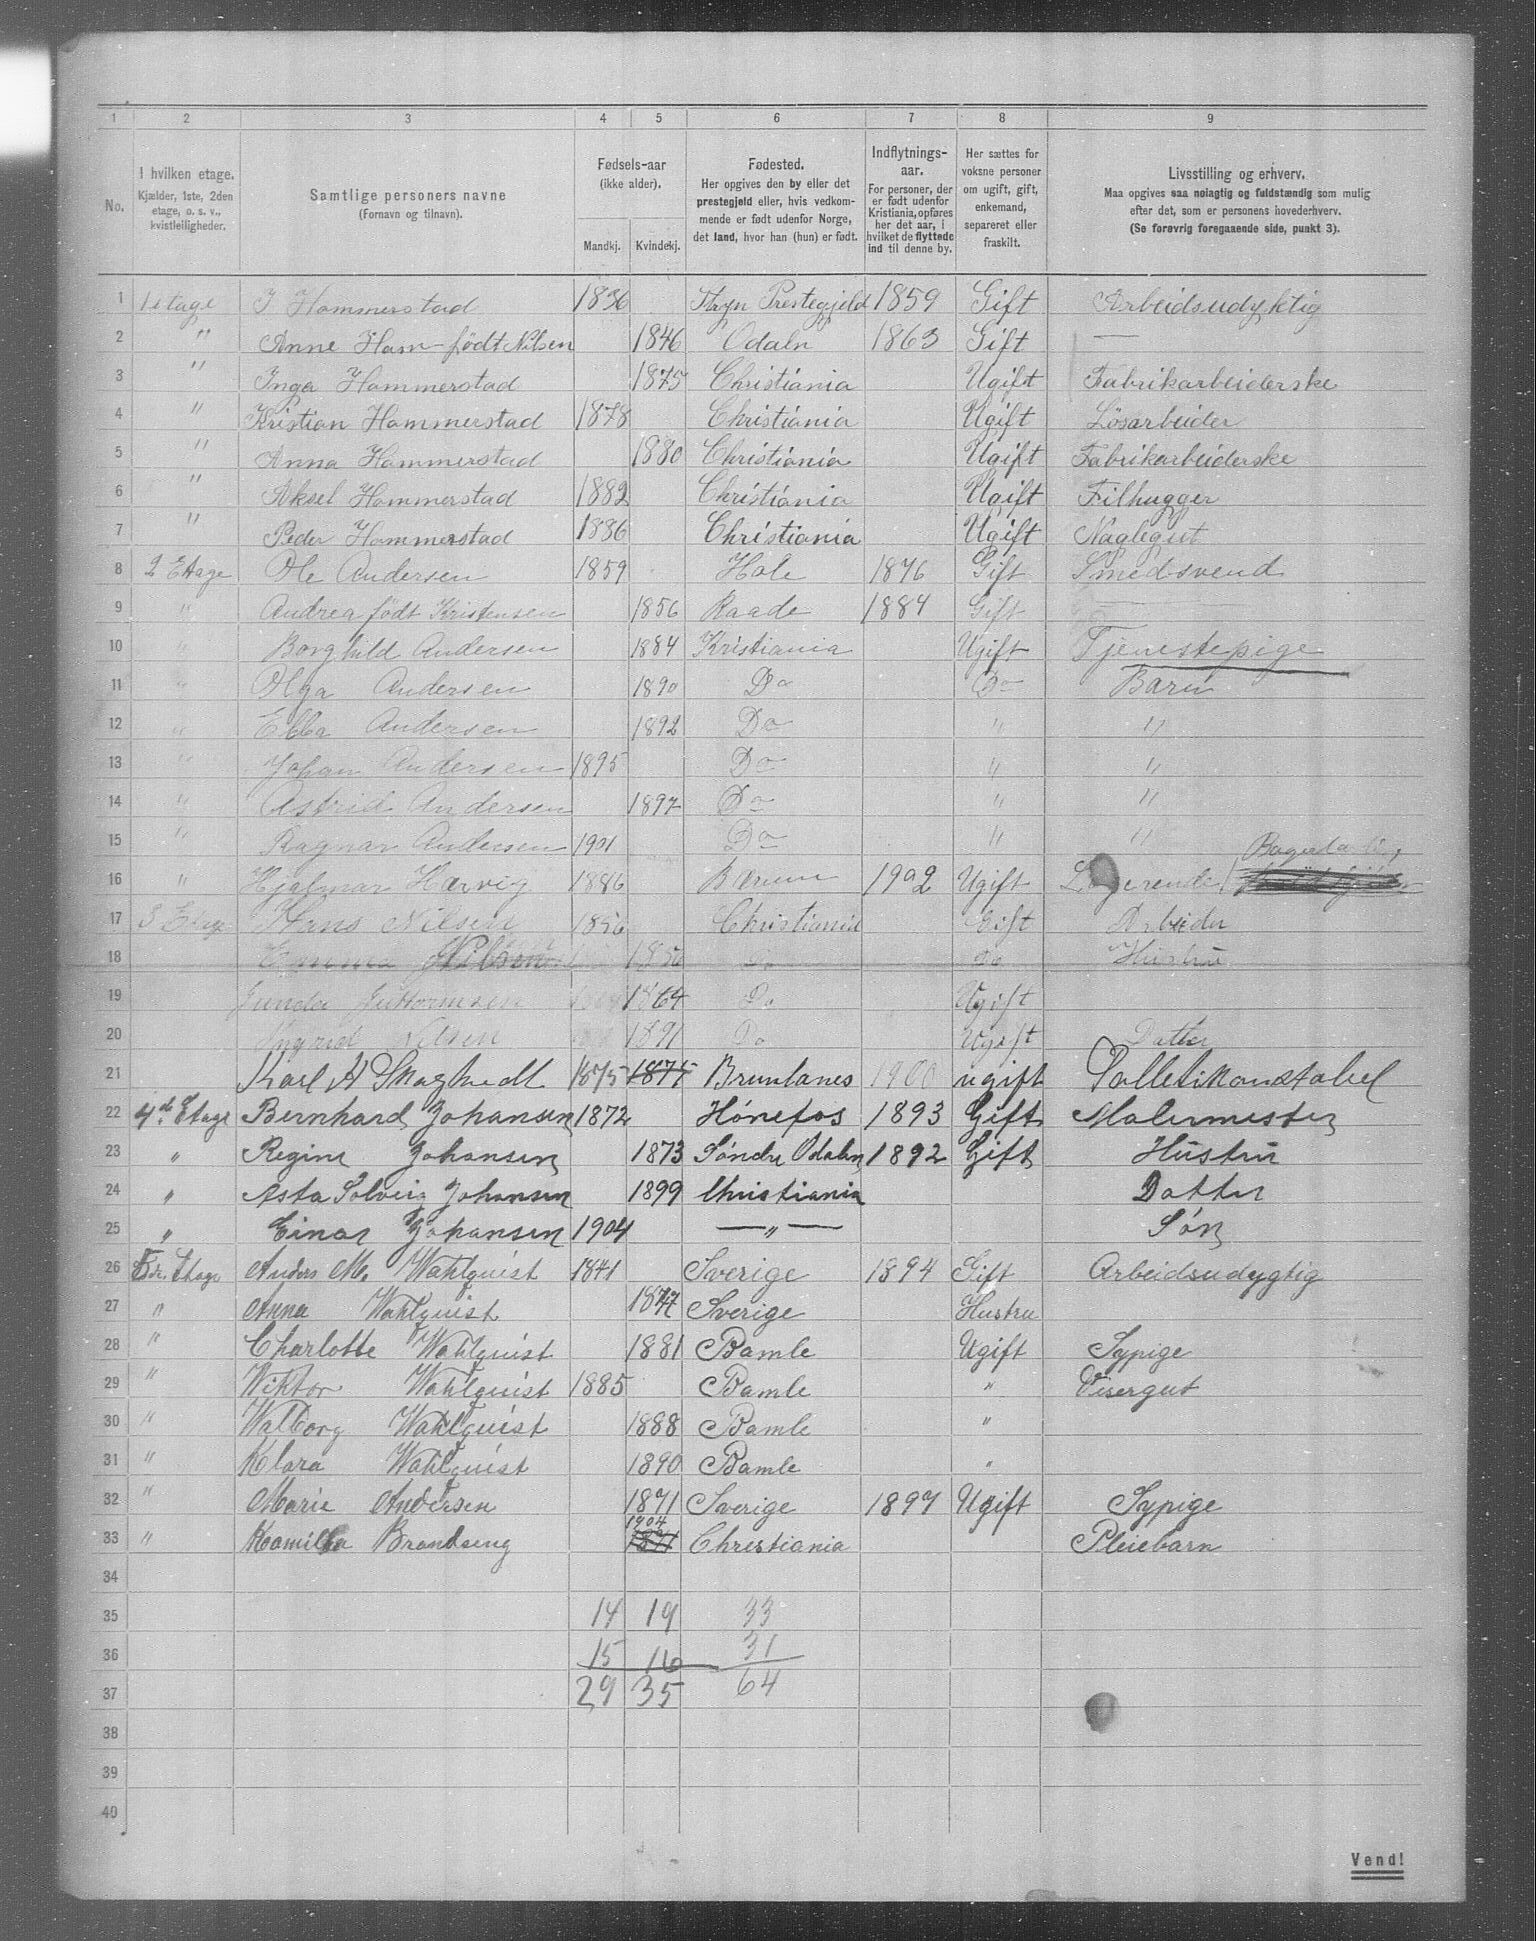 1 2 3 4 5 6 7 8 9
No.
I hvilken etage.
Kjælder, 1ste, 2den
etage, o. s. v.,
kvistleiligheder.
Samtlige personers navne
(Fornavn og tilnavn).
Fødsels-aar
(ikke alder).
Mandkj. Kvindekj.
Fødested.
Her opgives den by eller det
prestegjeld eller, hvis vedkom-
mende er født udenfor Norge,
det land, hvor han (hun) er født.
Indflytnings-
aar.
For personer, der
er født udenfor
Kristiania, opføres
her det aar, i
hvilket de flyttede
ind til denne by.
Her sættes for
voksne personer
om ugift, gift,
enkemand,
separeret eller
fraskilt.
Livsstilling og erhverv.
Maa opgives saa nøiagtig og fuldstændig som mulig
efter det, som er personens hovederhverv.
(Se forøvrig foregaaende side, punkt 3).
1 1 etage I Hammerstad 1836 Stryn Prestegjeld 1859 Gift Arbeidsudyktig
2 " Anne Ham- født Nilsen 1846 Odaln 1863 Gift —
3 " Inga Hammerstad 1875 Christiania Ugift Fabrikarbeiderske
4 " Kristian Hammerstad 1878 Christiania Ugift Lösarbeider
5 " Anna Hammerstad 1880 Christiania Ugift Fabrikarbeiderske
6 " Aksel Hammerstad 1882 Christiania Ugift Filhugger
7 " Peder Hammerstad 1886 Christiania Ugift Naglegut
8 2 Etage Ole Andersen 1859 Hole 1876 Gift Smedsvend
9 " Andrea født Kristensen 1856 Raade 1884 Gift —
10 " Borghild Andersen 1884 Kristiania Ugift Tjenestepige
11 " Olga Andersen 1890 Do Do Barn
12 " Ebba Andersen 1892 Do " "
13 " Johan Andersen 1895 Do " "
14 " Astrid Andersen 1897 Do " "
15 " Ragnar Andersen 1901 Do " "
16 " Hjalmar Harvig 1886 Bærum 1902 Ugift Logerende
17 3 Etage Hans Nilsen 1856 Christiania Gift Arbeider
18 Emma Nilsen 1856 Do Do Hustru
19 Guttormsen 1864 Do Ugift
20 Ingrid Nilsen 1891 Do Ugift Datter
21 Karl H 1875 1875 Brunlanes 1900 ugift Polletikonstabel
22 4de Etage Bernhard Johansen 1872 Hónefos 1893 Gift Malermester
23 " Regine Johansen 1873 Søndre Odalen 1892 Gift Hustru
24 " Asta Solveig Johansen 1899 Christiania Datter
25 " Einar Johansen 1904 — " — Søn
26 5de. Etage Anders M. Wahlquist 1841 Sverige 1894 Gift Arbeidsudygtig
27 " Anna Wahlquist Sverige Hustru
28 " Charlotte Wahlquist 1881 Bamle Ugift Sypige
29 " Viktor Wahlquist 1885 Bamle " Visergut
30 " Walborg Wahlquist 1888 Bamle "
31 " Klara Wahlquist 1890 Bamle "
32 " Marie Andersen 1871 Sverige 1897 Ugift Sypige
33 " Kamilla Brandseng 1904 Christiania Pleiebarn
34
35 14 19 33
36 15 16 31
37 29 35 64
38
39
40
Vend!